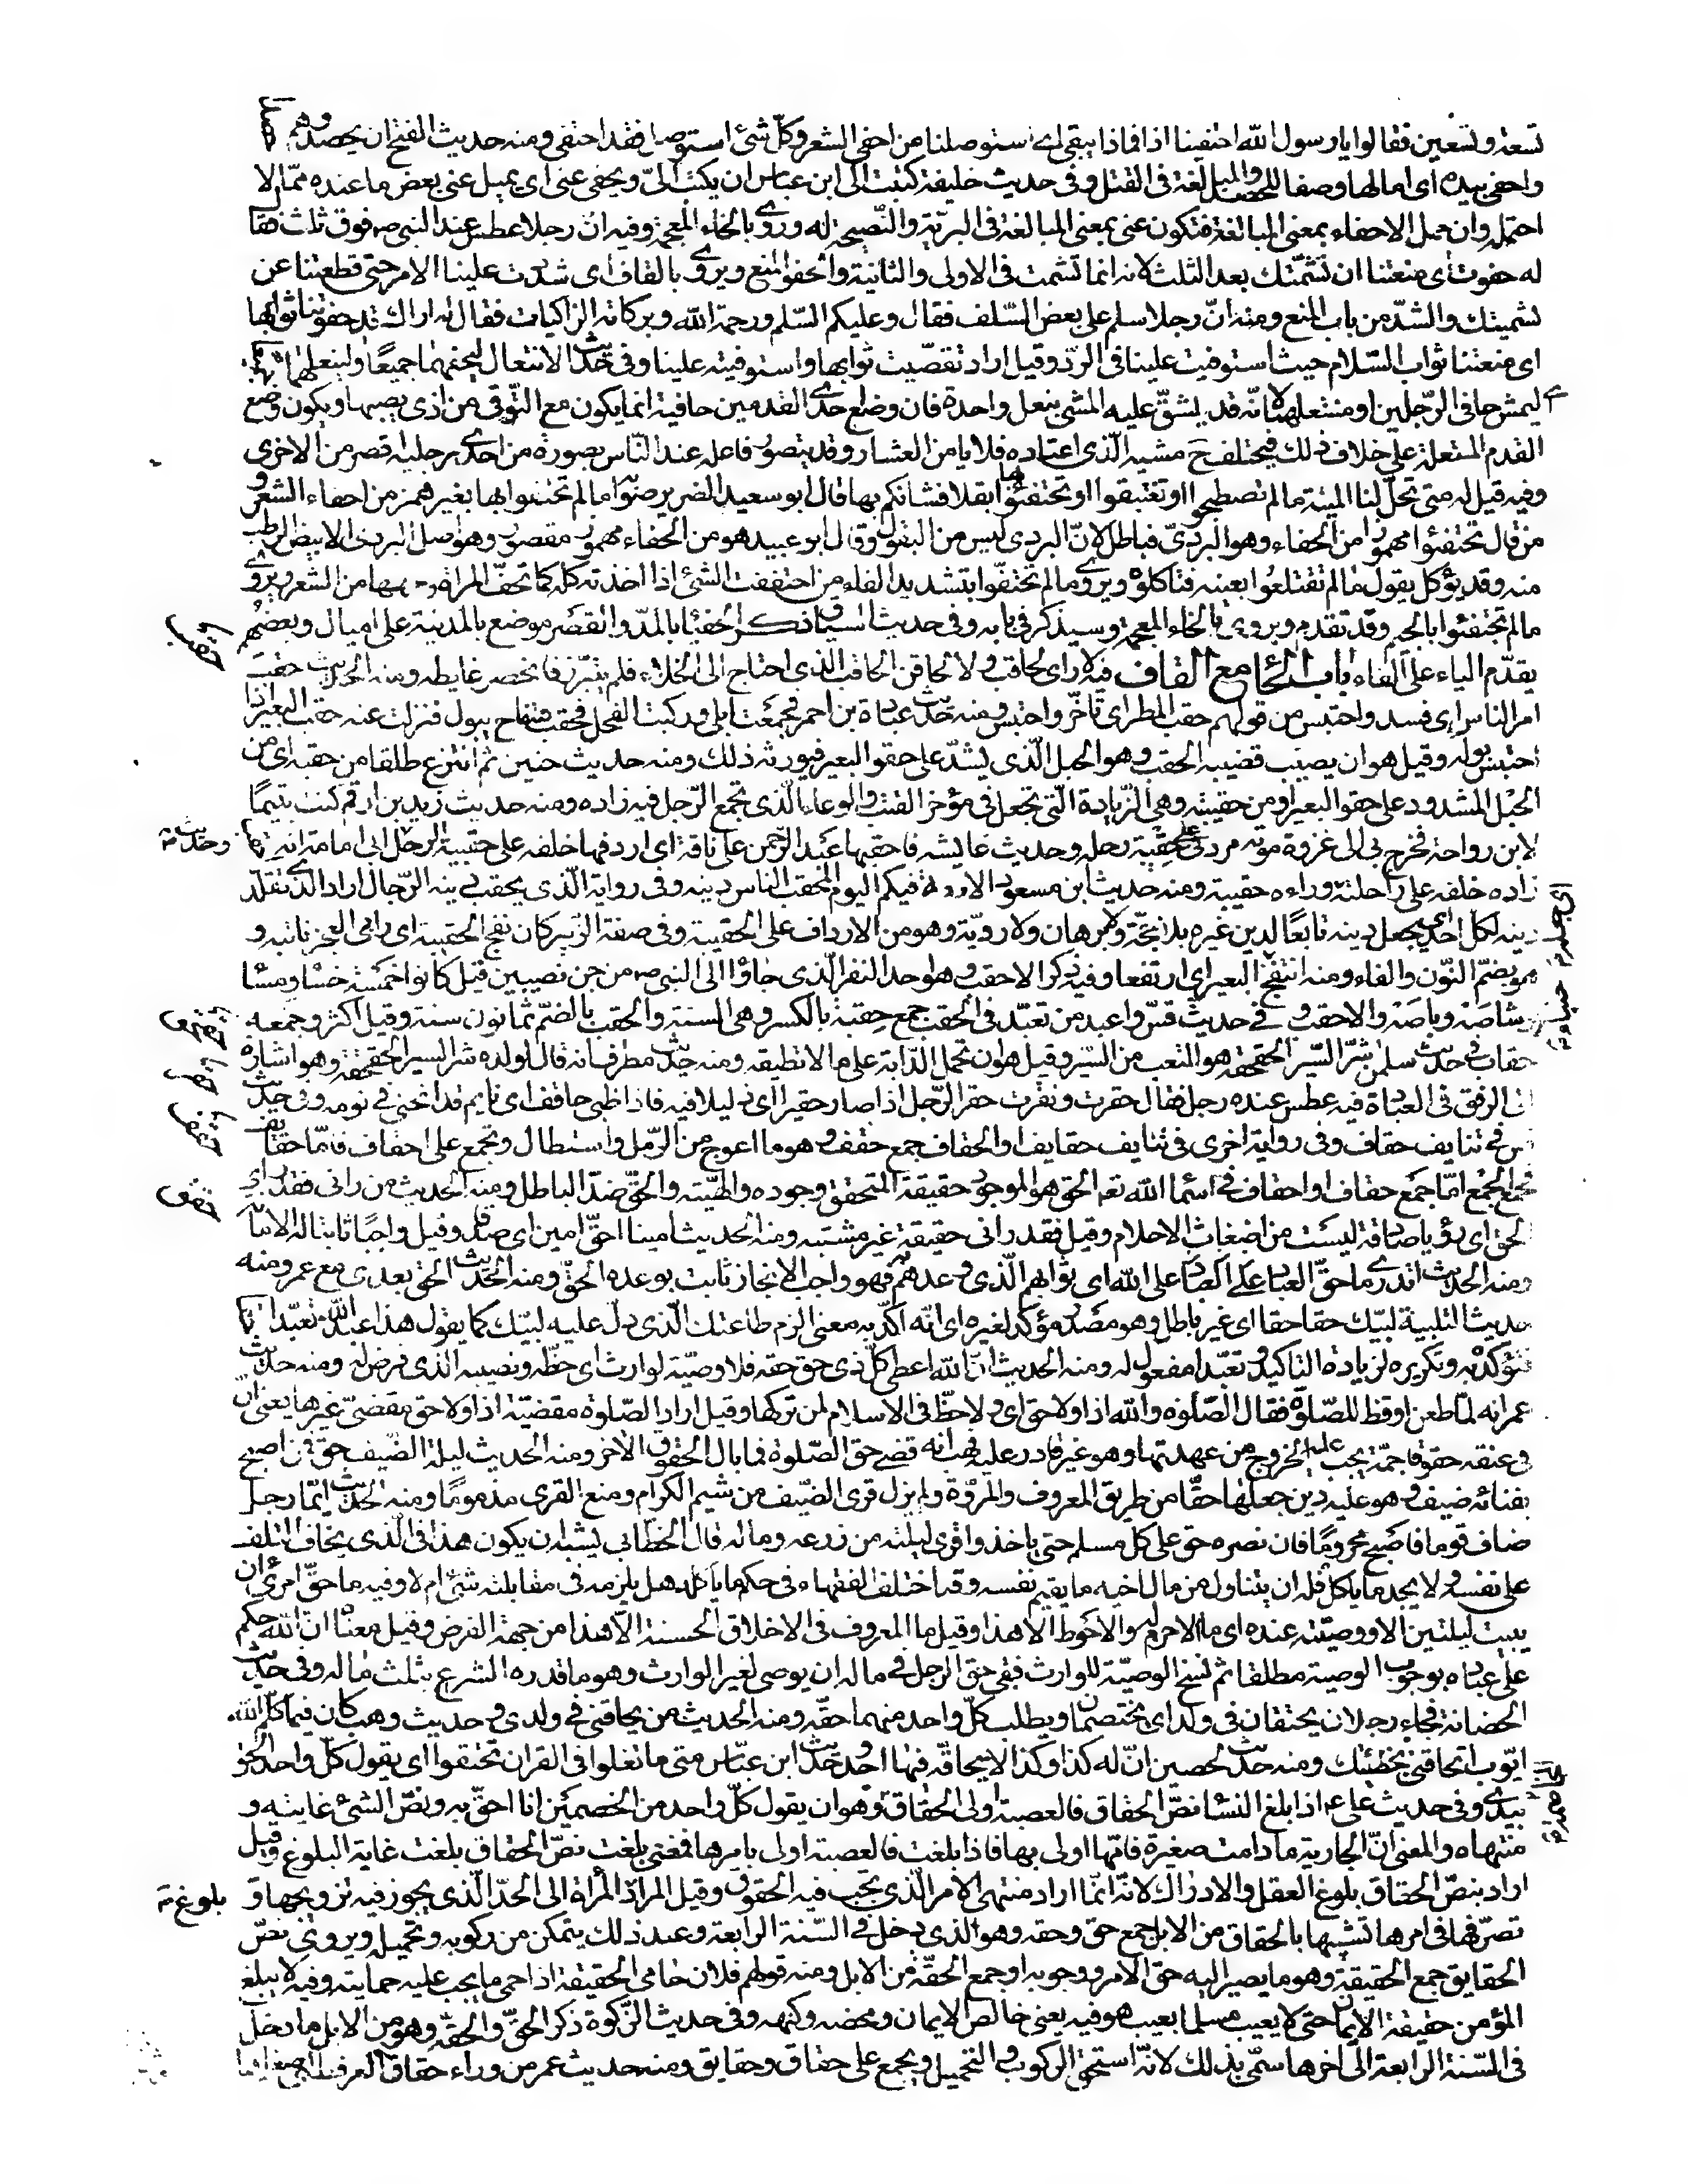 تسعة وتسعين فقالوا يا رسول الله احتفينا اذا فماذا يبقى اى استوصلنا من احفى الشعر وكل شئ استوصل فقد احتفى ومنه حديث الفتح ان يحصدوهم
واحفى بيده اى امالها وصفا للحصد والمبالغة فى القتل وفى حديث خليفة كتبت الى ابن عباس ان يكتب الىّ ويحفى عنى اى يميل عنى بعض ما عنده مما لا
احتمله وان حمل الاحفاء بمعنى المبالغة فتكون عنى بمعنى المبالغة فى البرّ به والنصيحة له وروى بالخاء المعجمة وفيه ان رجلا عطس عند النبى ص فوق ثلاث فقال
له حفوت اى منعتنا ان نشمّتك بعد الثلث لانه انما تشمت فى الاولى والثانية والحفو المنع ويروى بالقاف اى شددت علينا الامر حتى قطعتنا عن
تشميتك والشدّ من باب المنع ومنه انّ رجلا سلم على بعض السّلف فقال وعليكم السّلم ورحمة الله وبركاته الزاكيات فقال له اراك قد حفوتنا ثوابها
اى منعتنا ثواب السّلام حيث استوفيت علينا فى الردّ وقيل اراد تقصّيت ثوابها واستوفيته علينا وفى حديث الانتعال ليحفهما جميعًا او لينعلهما
ليمش حافى الرّجلين او منتعلهما لانّه قد يشقّ عليه المشى بنعل واحدة فان وضع احدى القدمين حافية انما يكون مع التّوقى من اذى يصيبها ويكون وضع
القدم المنتعلة على خلاف ذلك فيختلف ح مشيه الّذى اعتاده فلا يامن العثار وقد يتصور فاعله عند النّاس بصورة من احدى رجليه اقصر من الاخرى
وفيه قيل له متى تحلّ لنا الميتة ما لم تصطبحوا او تغتبقوا او تحتفئوا بها بقلا فشانكم بها قال ابو سعيد الضرير صوابه ما لم تحتفوا بها بغير همز من احفاء الشعر و
من قال تحتفئوا مهموز من الحفاء وهو البردىّ فباطل لانّ البردى ليس من البقول وقال ابو عبيد هو من الحفاء مهموز مقصور وهو اصل البردى الابيض الرطب
منه وقد يؤكل يقول ما لم تقتلعوا بعينه فتاكلوه ويروى ما لم تحتفّوا بتشديد الفاء من احتففت الشئ اذا اخذته كله كما تحفّ المراة وجهها من الشعر ويروى
ما لم تجتفئوا بالجيم وقد تقدم ويروى بالخاء المعجمة وسيذكر فى بابه وفى حديث السباق ذكر الحفيا بالمدّ والقصر موضع بالمدينة على اميال وبعضهم
يقدّم الياء على الفاء باب الحاء مع القاف فيه لا راى لحاقب ولا لحاقن الحاقب الذى احتاج الى الخلاء فلم يتبرّز فانحصر غايطه ومنه الحديث حقب
امر الناس اى فسد واحتبس من قولهم حقب المطر اى تاخّر واحتبس ومنه حديث عبادة بن احمر فجمعت ابلى وركبت الفحل فحقب فتفاج يبول فنزلت عنه حقب البعير اذا
احتبس بوله وقيل هو ان يصيب قضيبه الحقب وهو الحبل الّذى يشدّ على حقو البعير فيورثه ذلك ومنه حديث حنين ثم انتزع طلقا من حقبه اى من
الحبل المشدود على حقو البعير او من حقيبته وهى الزّيادة الّتى تجعل فى مؤخر القتب والوعاء الّذى تجمع الرّجل فيه زاده ومنه حديث زيد بن ارقم كنت يتيمًا
لابن رواحة فخرج بى الى غزوة موته مردفى على حقيبة رحله وحديث عايشه فاحقبها عبد الرّحمن على ناقة اى اردفها خلفه على حقيبة الرحل
وحديث
زاده خلفه على راحلته وراءه حقيبة ومنه حديث ابن مسعود الامعة فيكم اليوم المحقب الناس دينه وفى رواية الّذى يحقب دينه الرّجال اراد الّذى يقلّد
دينه لكل احد اى يجعل دينه تابعًا لدين غيره بلا حجّة ولا برهان ولا رويّة وهو من الارداف على الحقيبة وفى صفة الزبير كان نفج الحقيبة اى رابى العجز ناتيه و
هو بضمّ النّون والفاء ومنه انتفج البعير اى ارتفعا وفيه ذكر الاحقب وهو احد النفر الّذى جاؤا الى النبى ص من جن نصيبين قيل كانوا خمسة خسا ومسا
وشاصة وباصة والاحقب وفى حديث قسّ واعبد من تعبّد فى الحقب جمع حقبة بالكسر وهى السنة والحقب بالضمّ ثمانون سنة وقيل اكثر وجمعه
حقاب وفى حديث سلمن شرّ السّير الحقحقة هو المتعب من السّير وقيل هو ان تحمل الدّابة على ما لا تطيقه ومنه حديث مطرف انه قال لولده شر السير الحقحقة وهو اشارة
الى الرفق فى العبادة فيه عطس عنده رجل فقال حقرت ونقرت حقر الرّجل اذا صار حقيرا اى ذليلا فيه فاذا ظبى حاقف اى نايم قد انحنى فى نومه وفى حديث
قس فى تنايف حقاف وفى رواية اخرى فى تنايف حقايف والحقاف جمع حقف وهو ما اعوج من الرّمل واستطال وتجمع على احقاف فامّا حقايف
فجمع الجمع امّا جمع حقاف او احقاف فى اسماء الله تعه الحق هو الموجود حقيقة المتحقق وجوده والهيّته والحقّ ضدّ الباطل ومنه الحديث من رانى فقد راى
الحق اى رؤيا صادقة ليست من اضغاث الاحلام وقيل فقد رانى حقيقة غير مشتبه ومنه الحديث امينا حقّ امين اى صدقا وقيل واجبًا ثابتا له الامانة
ومنه الحديث اتدرى ما حقّ العباد على الله اى ثوابهم الّذى وعدهم به فهو واجب الانجاز ثابت بوعده الحقّ ومنه الحديث الحق بعدى مع عمر ومنه
حديث التلبية لبّيك حقا حقا اى غير باطل وهو مصدر مؤكد لغيره اى انّه اكّد به معنى الزم طاعتك الّذى دلّ عليه لبّيك كما يقول هذا عبد الله حقا تعبّدا
فتؤكد به وتكريره لزيادة التاكيد وتعبّدا مفعول له ومنه الحديث انّ الله اعطى كلّ ذى حق حقه فلا وصيّة لوارث اى حظّه ونصيبه الّذى فرض له ومنه حديث
عمر انه لمّا طعن اوقظ للصّلوة فقال الصّلوة والله اذا ولا حق اى ولا حظّ فى الاسلام لمن تركها وقيل اراد الصّلوة مقضيّة اذا ولا حق مقضىّ غيرها يعنى ان
فى عنقه حقوقا جمّة يجب عليه الخروج من عهدتها وهو غير قادر عليه فهب انه قضى حق الصّلوة فما بال الحقوق الاخر ومنه الحديث ليلة الضّيف حق فمن اصبح
بفنائه ضيف وهو عليه دين جعلها حقّا من طريق المعروف والمروّة ولم يزل قرى الضّيف من شيم الكرام ومنع القرى مذمومًا ومنه الحديث ايّما رجل
ضاف قوما فاصبح محرومًا فان نصره حق على كل مسلم حتى ياخذوا قرى ليلته من زرعه وماله قال الخطابى يشبه ان يكون هذا فى الّذى يخاف التلف
على نفسه ولا يجد ما ياكل فله ان يتناول من مال اخيه ما يقيم نفسه وقد اختلف الفقهاء فى حكم ما ياكله هل يلزمه فى مقابلته شئ ام لا وفيه ما حقّ امرئ ان
يبيت ليلتين الا ووصيّته عنده اى ما الاحزم له والاحوط الا هذا وقيل ما المعروف فى الاخلاق الحسنة الّا هذا من جهة الفرض وقيل معناه انّ الله حكم
على عباده بوجوب الوصية مطلقا ثم نسخ الوصيّة للوارث فبقى حق الرجل فى ماله ان يوصى لغير الوارث وهو ما قدره الشرع بثلث ماله وفى حديث
الحضانة فجاء رجلان يحتقان فى ولد اى يختصمان ويطلب كلّ واحد منهما حقّه ومنه الحديث من يحاقنى فى ولدى وحديث وهب كان فيما كلّم الله
ايّوب اتحاقنى بخطئك ومنه حديث لحصين انّ له كذا وكذا لا يحاقّه فيها احد وحديث ابن عبّاس متى ما تغلوا فى القران تحتقوا اى يقول كلّ واحد الحق
بيدى وفى حديث على ع اذا بلغ النسا نصّ الحقاق فالعصبة اولى الحقاق وهو ان يقول كلّ واحد من الخصمين انا احقّ به ونصّ الشئ غايته و
منتهاه والمعنى انّ الجارية ما دامت صغيرة فامّها اولى بها فاذا بلغت فالعصبة اولى بامرها فمعنى بلغت نصّ الحقاق بلغت غاية البلوغ وقيل
اراد بنصّ الحقاق بلوغ العقل والادراك لانّه انّما اراد منتهى الامر الّذى يجب فيه الحقوق وقيل المراد المرأة الى الحدّ الّذى يجوز فيه تزويجها و
بلوغ
تصرّفها فى امرها تشبيها بالحقاق من الابل جمع حق وحقه وهو الذى دخل فى السّنة الرابعة وعند ذلك يتمكن من ركوبه وتحميله ويروى نصّ
الحقايق جمع الحقيقة وهو ما يصير اليه حق الامر ووجوبه او جمع الحقّة من الابل ومنه قولهم فلان حامى الحقيقة اذا حمى ما يجب عليه حمايته وفيه لا يبلغ
المؤمن حقيقة الايمان حتى لا يعيب مسلما بعيب هو فيه يعنى خالص الايمان ومحضه وكنهه وفى حديث الزّكوة ذكر الحقّ والحقّة وهو من الابل ما دخل
فى السّنة الرابعة الى اخرها سمّى بذلك لانّه استحق الركوب والتحميل ويجمع على حقاق وحقايق ومنه حديث عمر من وراء حقاق العرفط
حقب
حقحق
حقر
حقف
حقق